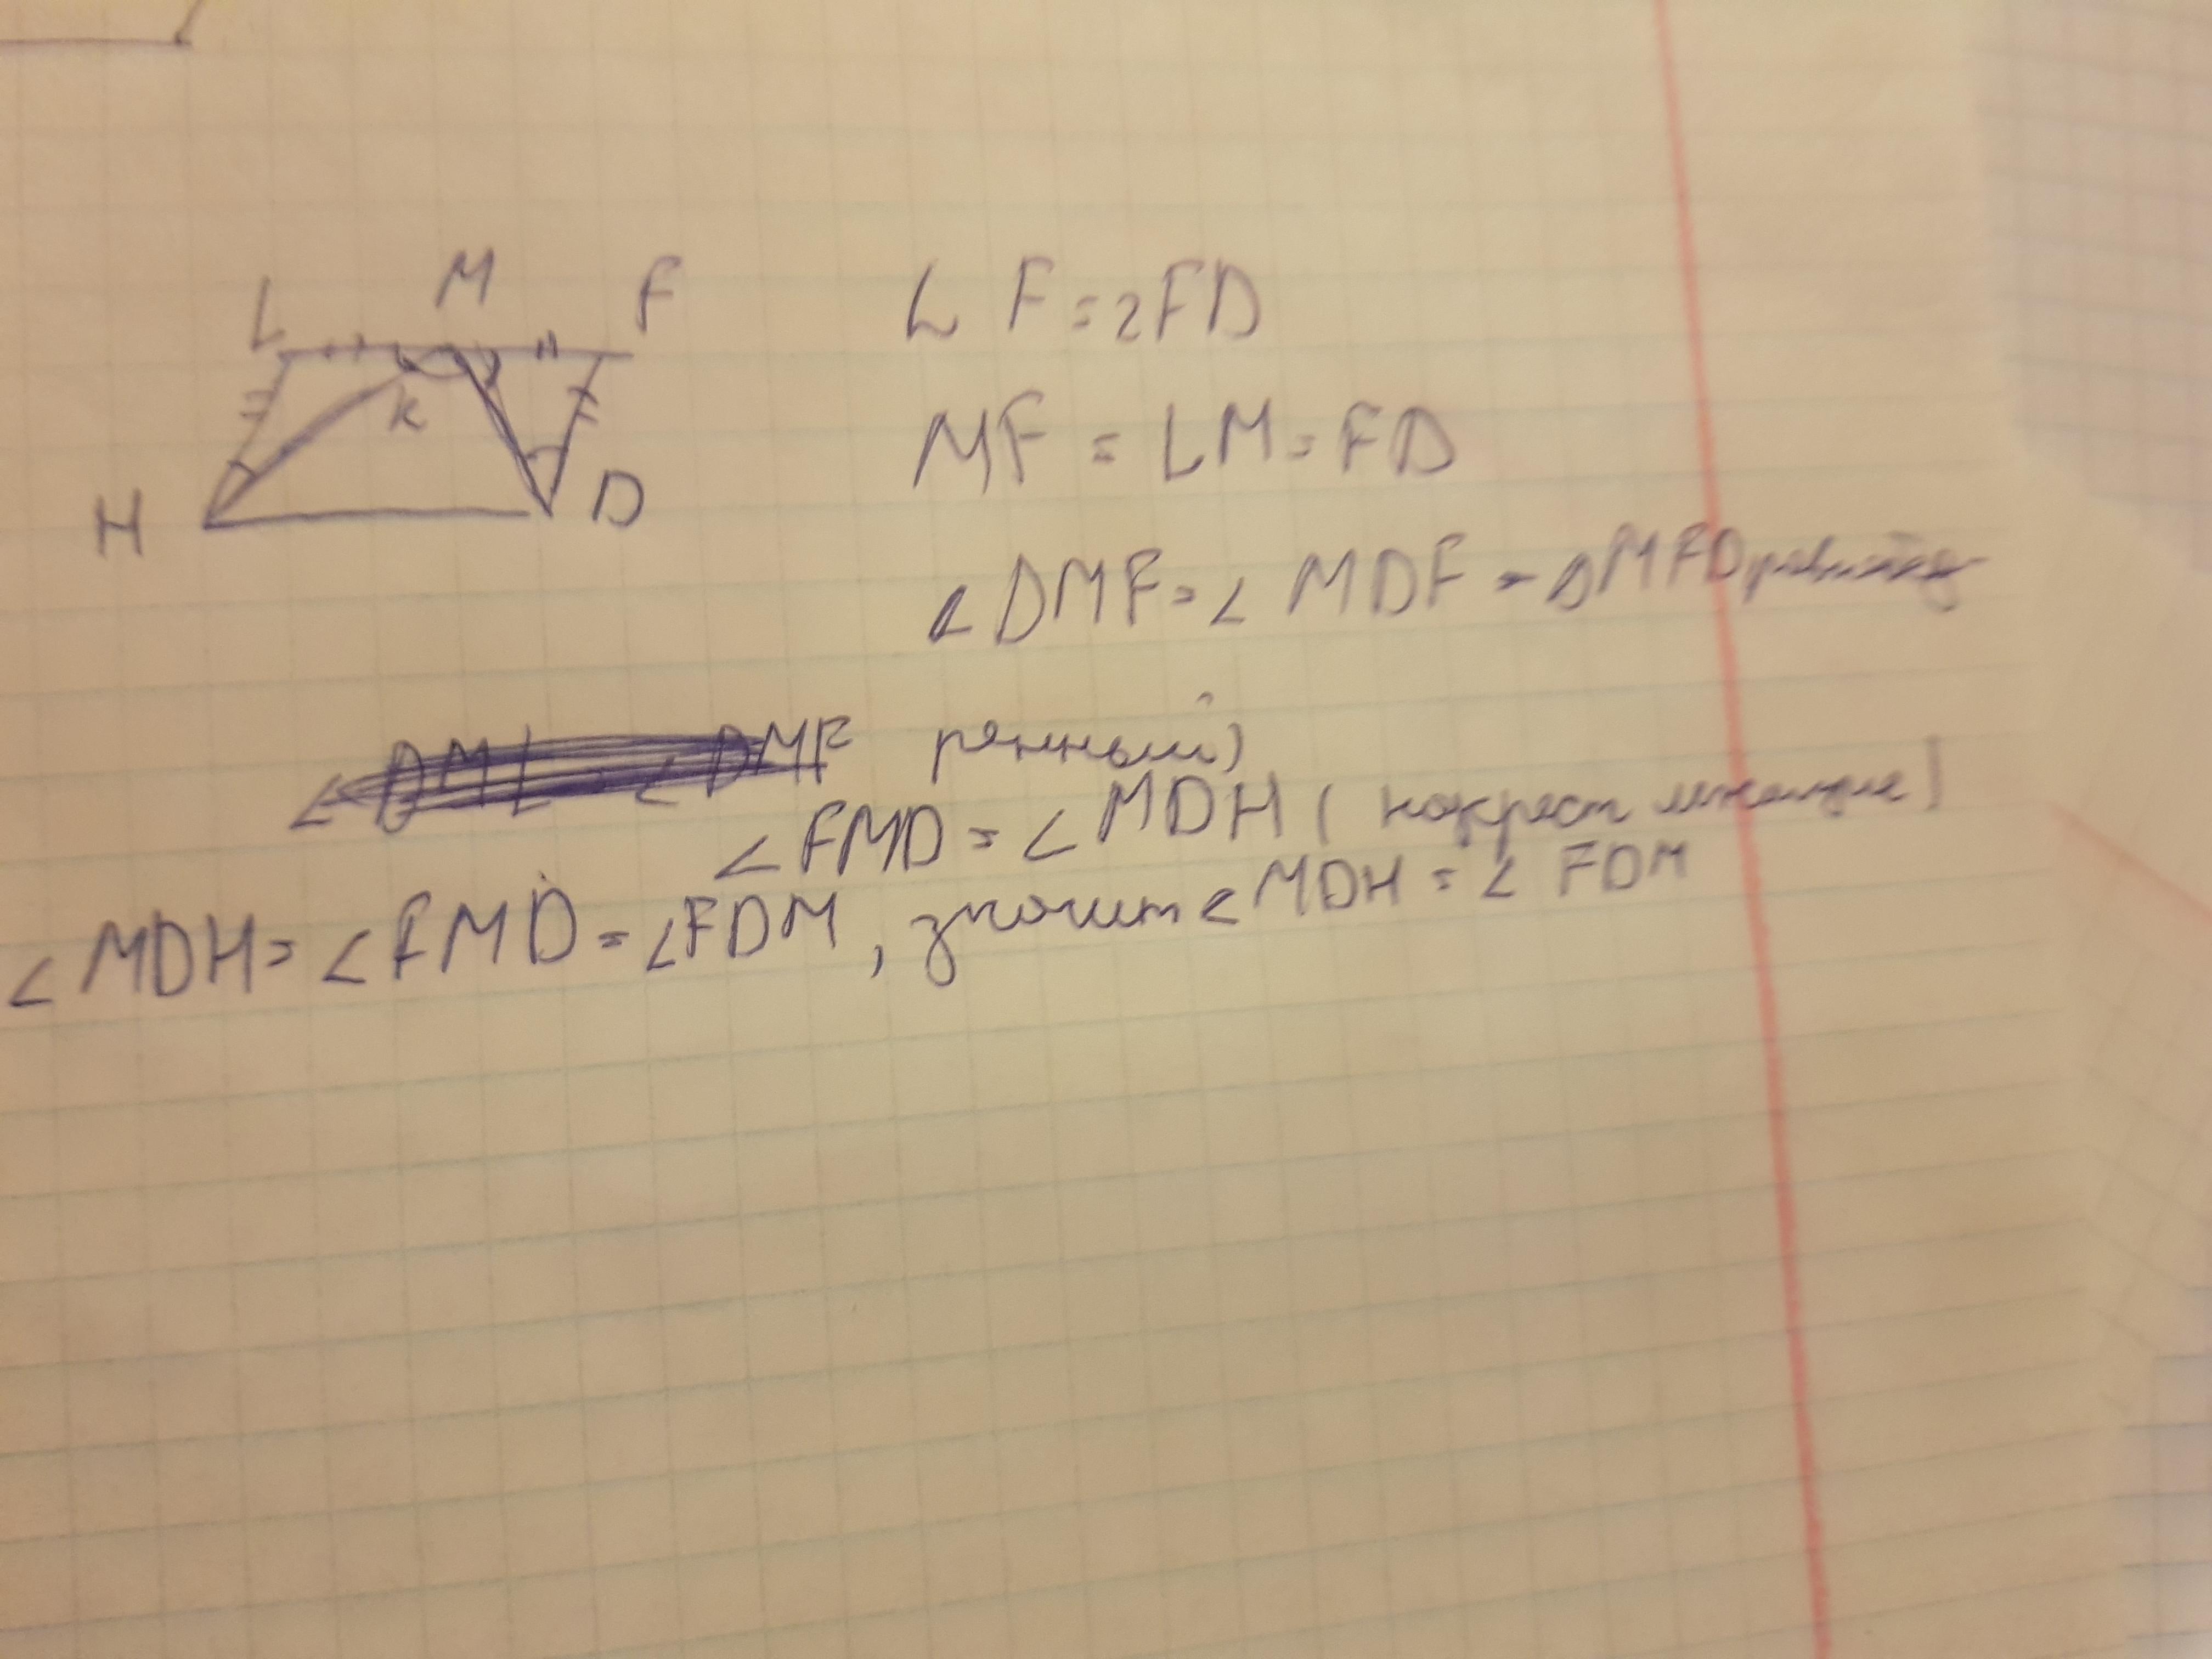 M
L F
K
H D
LF = 2FD
MF = LM = FD
∠DMF = ∠MDF - ΔMFD равнобед
∠DML = ∠DMF ренный)
∠FMD = ∠MDH (накрест лежащие)
∠MDH = ∠FMD = ∠FDM, значит ∠MDH = ∠FDM